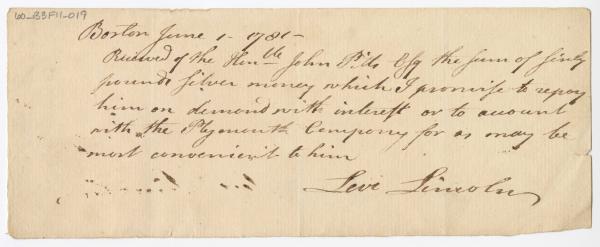 60_B3F11_019
Boston June 1 - 1781 -
Received of the Honble John Pitts Esq the sum of sixty
pounds silver money which I promise to repay
him on demand with interest or to account
with the Plymouth Company for as may be
most convenient to him
Levi Lincoln